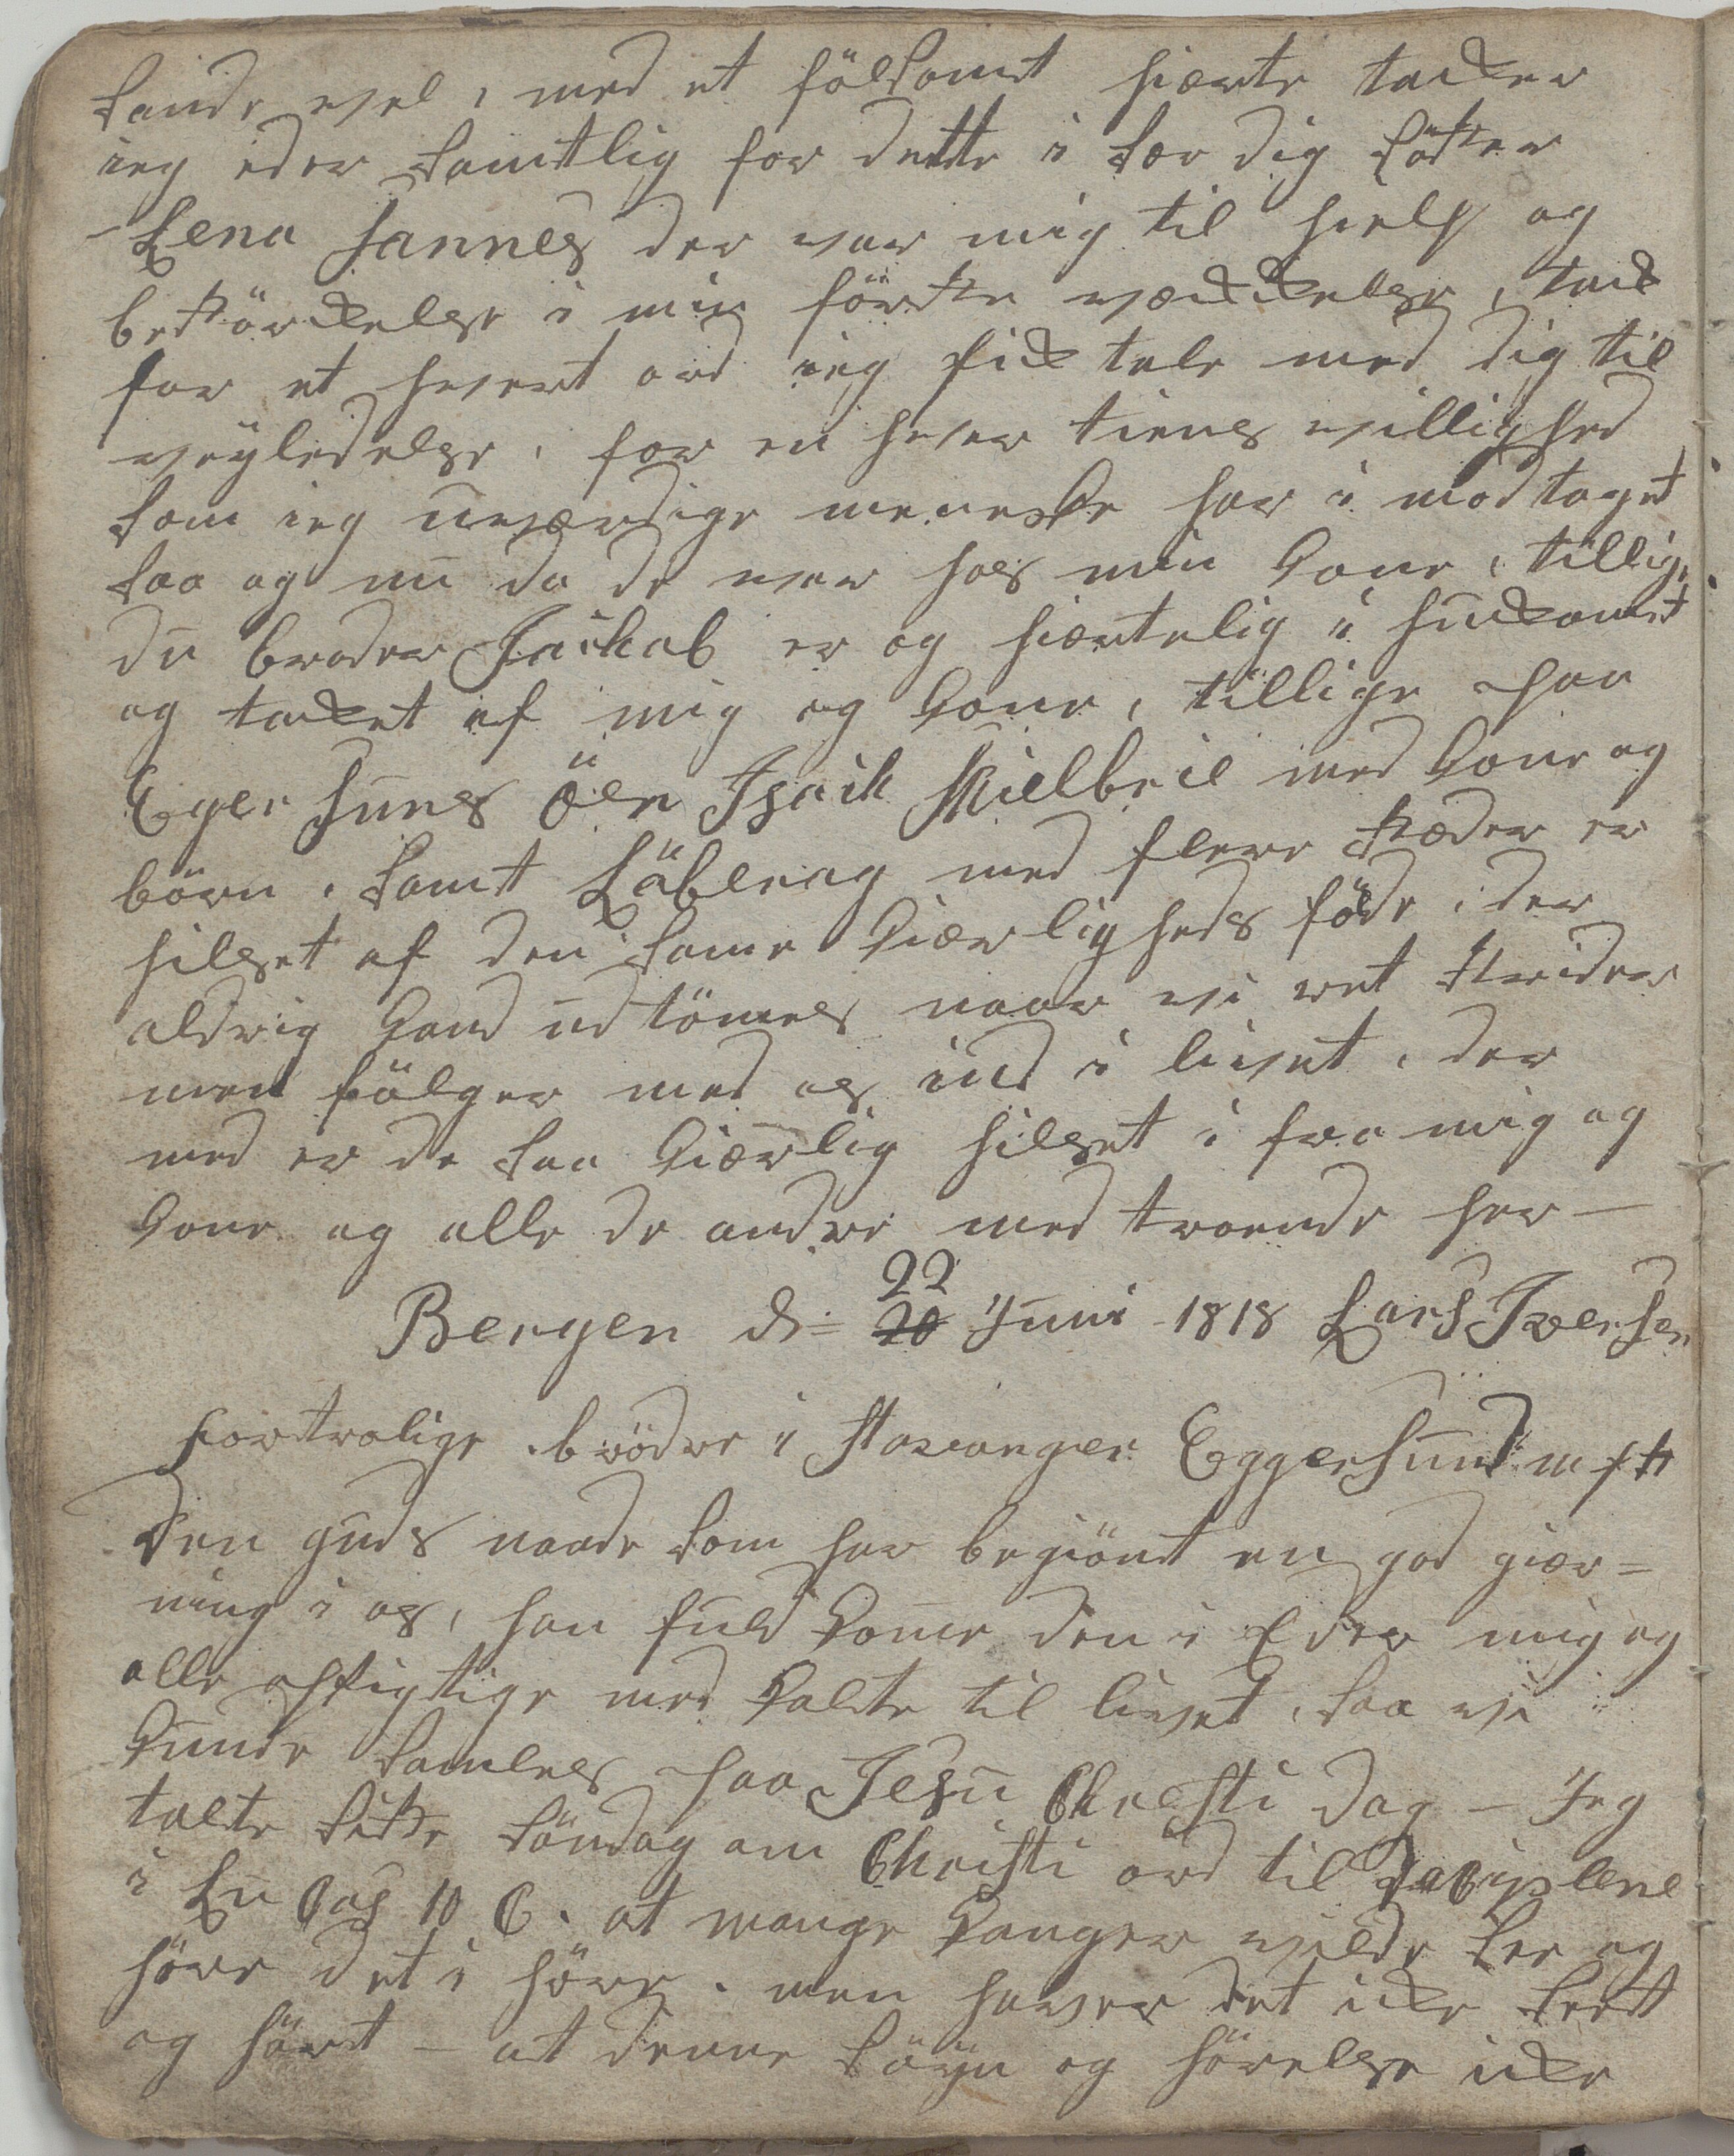 sande vel, med et fölsomt hierte tacker
ieg eder samtlig for dette i sær dig söster
Lena Hannes der var mig til hielp og
bestörckelse i min förste væckkelse, tack
for et hvert ord ieg fick tale med dig til
veyledelse, for en hver tienes villighed
som ieg uværdige meneske har i mod taget
saa og nu da de var hos min Kone, tillige
du broder Jaikab er og hiertelig i hukomet
og tacket af mig og Kone, tillige paa
Eger Suns öen Isaik Mielbeie med Kone og
börn. samt Läberag med flere stæder er
hilset af den same Kiærligheds föde, der
aldrig Kand udtömes naar vi ret strider
men fölger med os ind i livet, der
med er de saa Kiærlig hilset i fra mig og
Kone og alle de andre med troende her—
Bergen d= 22 20 Juni 1818 Lars Iversen
Fortrolige brödre i Stavanger Eggersund m fl
Den guds naade som har begiönt en god giær=
ning i os, han fuld Kome den i Eder mig og
alle opsigtige med Kalte til livet, saa vi
Kunde samles paa Jesu Christi dag — Jeg
talte siste söndag om Christi ord til Diciplene
i Lu Cas 10 C. at mange Konger vilde see og
höre det i höre. men haver det icke seet
og hört — at denne söyn og hörelse icke